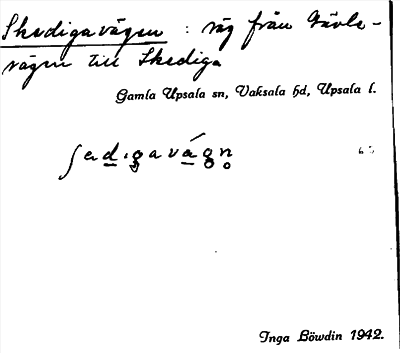 Skedigavägen : väg från Gävle-
vägen till Skediga
Gamla Upsala sn, Vaksala hd, Upsala l.
Inga Löwdin 1942.